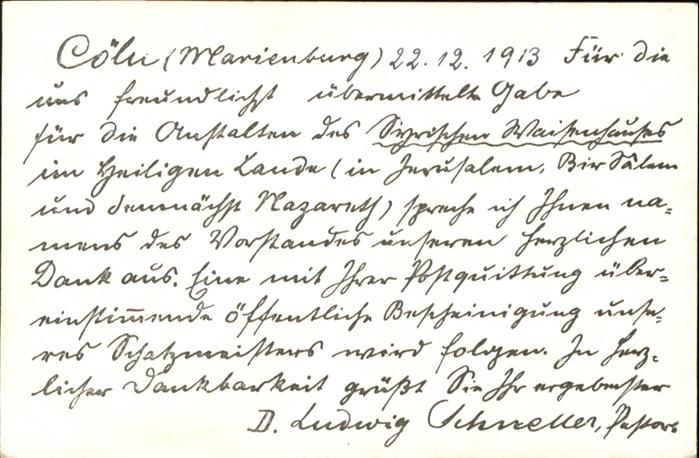 Cöln (Marienburg) 22.12.1913 Für die
uns freundlichst übermittelte Gabe
für die Anstalten des Syrischen Waisenhauses
im Heiligen Lande (in Jerusalem, Bir Sâlem
und demnächst Nazareth) spreche ich Ihnen na-
mens des Vorstandes unseren herzlichen
Dank aus. Eine mit Ihrer Postquittung über-
einstimmende öffentliche Bescheinigung unse-
res Schatzmeisters wird folgen. In herz-
licher Dankbarkeit grüßt Sie Ihr ergebenster
D. Ludwig Schneller, Pastor.